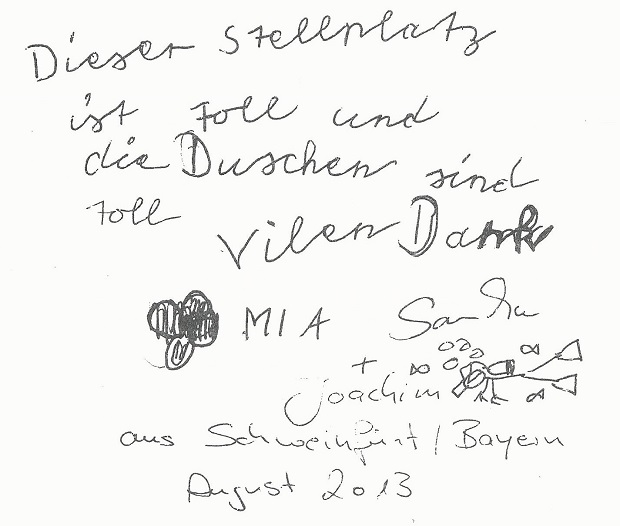 Dieser Stellplatz
ist toll und
die Duschen sind
toll
Vilen Dank
MIA Sandra
+ Joachim
aus Schweinfurt / Bayern
August 2013